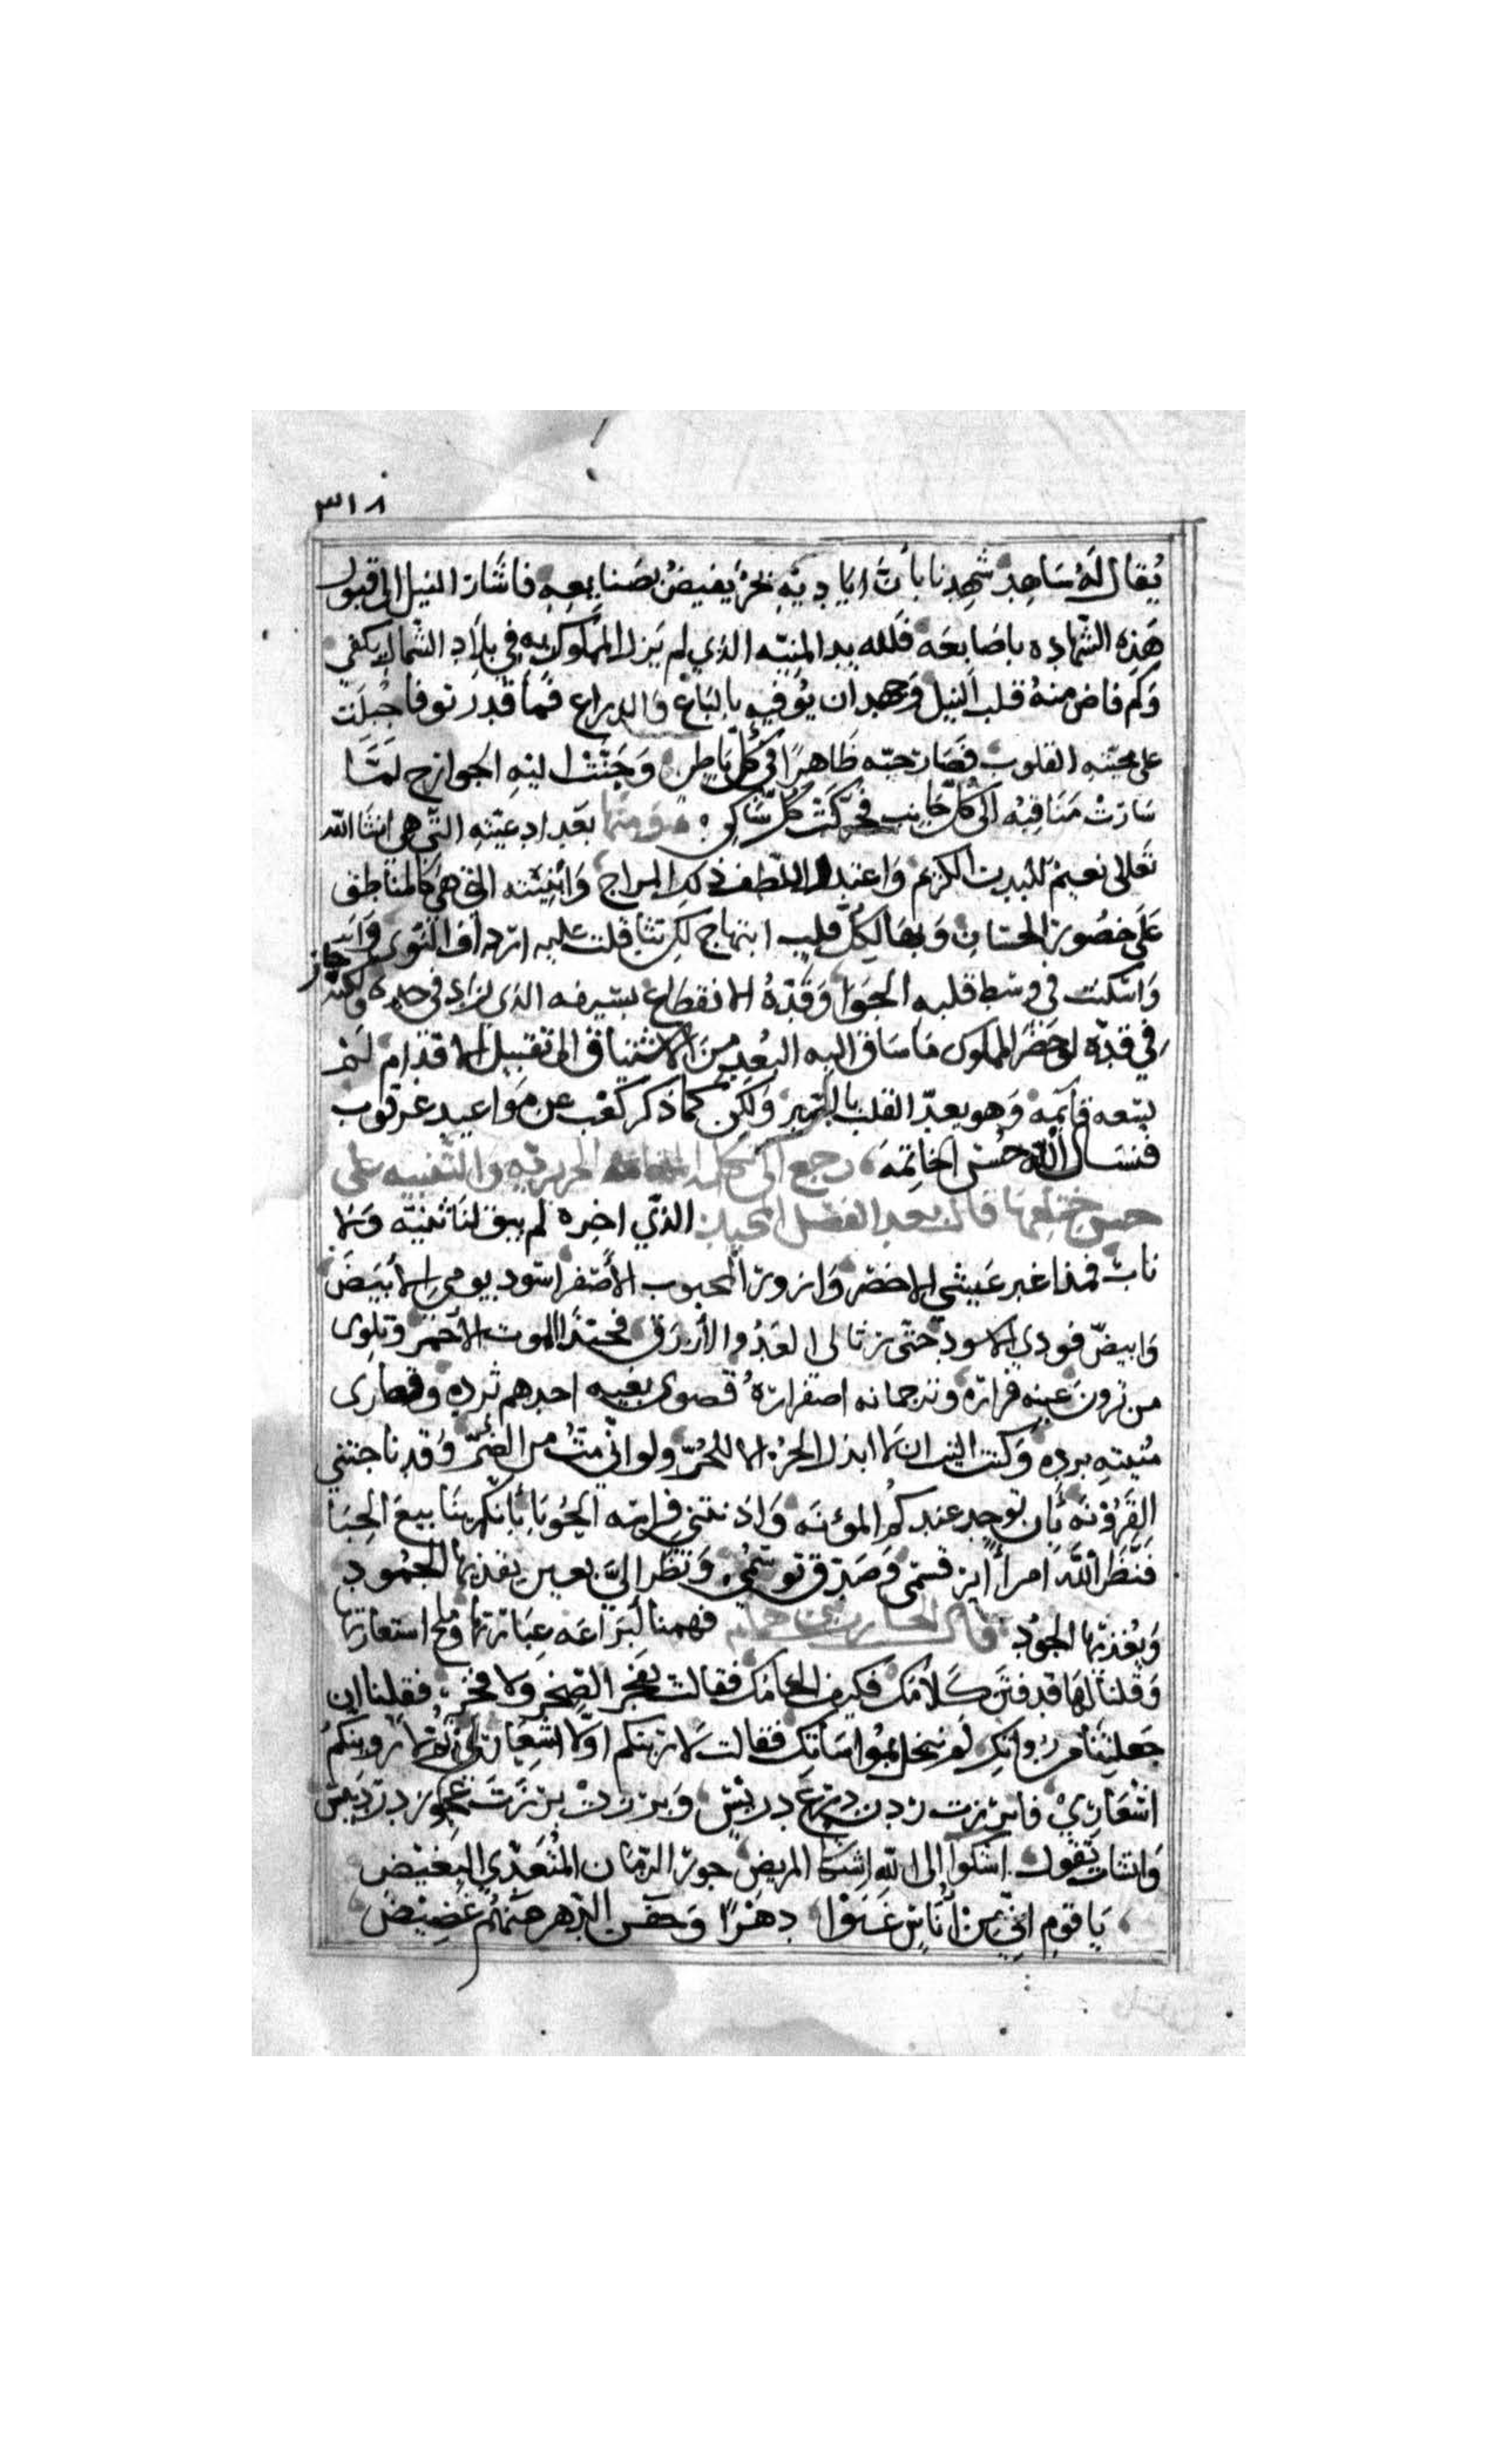 ٣١٨
يُقال لَهُ سَاجد شهِدنا بأنَّ اياديَهِ بحرٌ يفيضُ بصَنايعهِ فاشَارَ النيل الى قبول
هَذِهِ الشّهاده باصَابعَه فَلله يد المنيّه الذي لم يَزل المملوك به في بلادِ الشّمال يكفي
وَكم فاض منهُ قلب النيل وَجهد ان يُوَفيه بالبَاع وَالدراع فما قدر توفا جُبِلَت
على محبّته القلوب فصَارَ حبّه ظَاهِرًا في كلّ بَاطِن وَجَنَت اليهِ الجوارح لمّا
سَارَتْ مَنَاقبُه الى كلّ جَانب فحرّكَتْ كُلّ سَاكن ومنها بعَد ادعيَته التي هي انشا الله
تعَالى نعيمٌ للبدن الكريم وَاعتدال اللطف ذلك المزاج وَاثنيَته التي هي كالمناطق
عَلى خصُور الحسَان وَبهَا لكلّ قلب ابتهاج لكن تثاقلت عليه ارداف النوى
وَاسكنت في وسَط قلبه الجوَا وَقدّهُ الانقطاع بسَيفه الذي زاد في حده
في قدّه لوحَضَر المملوك مَا سَاق اليه البُعد منَ الاشتياق الى تقبيل الاقدام لم
يسَعه قآئمه وَهو يعدّ القلب بالتبريد وَلكن كما ذكر كعْب عن مَوَاعيد عرقوب
فنسَال اللّه حُسْن الخاتِمَه رجع الى تكملة المقامه الحريريه وَالتنبيه على
حسن ختامها قال بعد الفضل المحبلن الذي اخره لم يبق لنا ثنيّه وَلا
ناب فمذ اغبر عَيشي الاخضر وَازورّ المحبوب الأصْفر اسْود يومي الأبيَضَ
وَابيضّ فودي الاسود حتّى رَثا لي العَدُو الأزرَق فحبّذا الموت الأحمَر وَتلوي
من ترون عَينه فراره وترجمانه اصفراره قصوى بغيه احدهم ثرده وقصارى
مُنيته برده وَكنت اليت ان لا ابذل الحرّ الا للحُرّ ولو انّي متُّ من الضّرّ وَقد ناجتني
القَرُوْنَه بأَن توجد عندكم المؤنَه وَاذنتني فراسَه الحَوبَا بأنّكم ينَابيعَ الحبَا
فنَضَّر اللَّهَ امرأً ابرّ قسَمي وَصَدَّق توسّمي وَنَظر اليَّ بعين يقذيها الجُمُود
وَيُقذيها الجُود قال الحارث بن همام فهمنا لبَرَاعَه عِبَارَتها وملح استعارَتها
وَقلنا لهَا قد فتَن كَلامُك فكيف الحامُك فقالت يفجر الصَّخر وَلا فخر فقلنا ان
جَعلتِنا من رُوَاتِكِ لم نبخل بموُاسَاتك فقالت لاُريَنّكم اوّلًا شعَاري ثُمَّ لاُروينّكُم
اشعَارِيْ فابرَزت رُدن دِرعٍ دريْسٍ وَبرزتْ برزَتَ عجُوز دردَبيْس
وَانشات تقول اشكوا إلى اللّهِ اشتكا المريض جورَ الزّمَان المُتعَدّي البغيْض
يَا قوم انّي من أنَاسٍ غَنَوْا دهْرًا وَجفن الدّهر عنهُم غَضِيْض